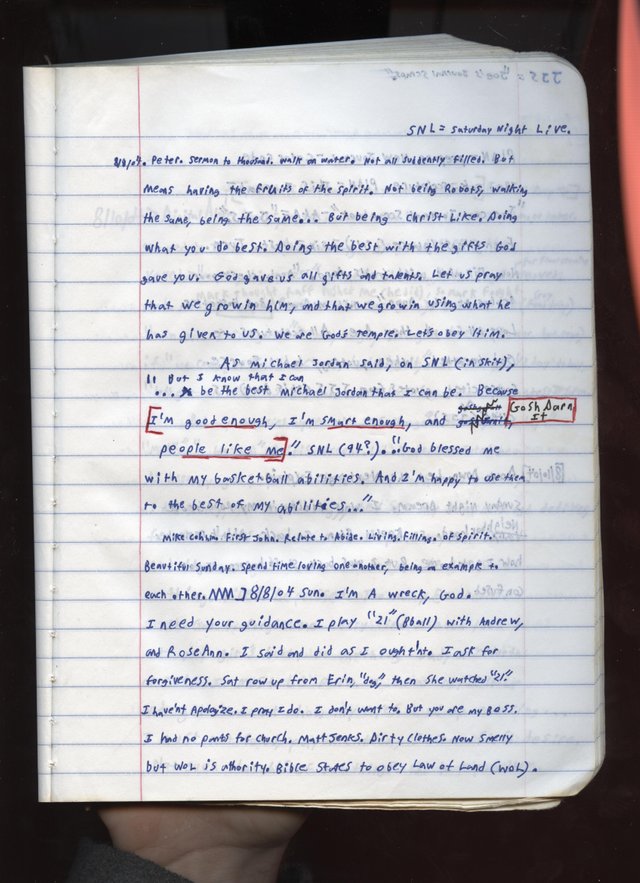 JJS = "Joe's Journal Scraps"
SNL = Saturday Night Live.
8/8/04. Peter. Sermon to thousand. Walk on water. Not all suddently filled. But
means having the fruits of the spirit. Not being Robots, walking
the same, being the same... But being Christ Like. Doing
what you do best. Doing the best with the gifts God
gave you. God gave us all gifts and talents. Let us pray
that we grow in him, and that we grow in using what he
has given to us. We are God's Temple. Let's obey Him.
As Michael Jordan said, on SNL (in skit),
" But I know that I can
... be the best Michael Jordan that I can be. Because
[I'm good enough, I'm smart enough, and Gosh Darn It
people like me]." SNL (94?)... "God blessed me
with my basketball abilities. And I'm happy to use them
to the best of my abilities..."
Mike First John. Relate to Abide. Living. Fillings. of spirit.
Beautiful Sunday. Spend time loving one another, being an example to
each other. ] 8/8/04 Sun. I'm A wreck, God.
I need your guidance. I play "21" (8ball) with Andrew,
and RoseAnn. I said and did as I ought'nt. I ask for
forgiveness. Sat row up from Erin, then she watched "21."
I hav'ent Apologize. I pray I do. I don't want to. But you are my Boss.
I had no pants for church. Matt Jenks. Dirty Clothes. Now smelly
but WOL is athority. Bible States to obey Law of Land (WOL).